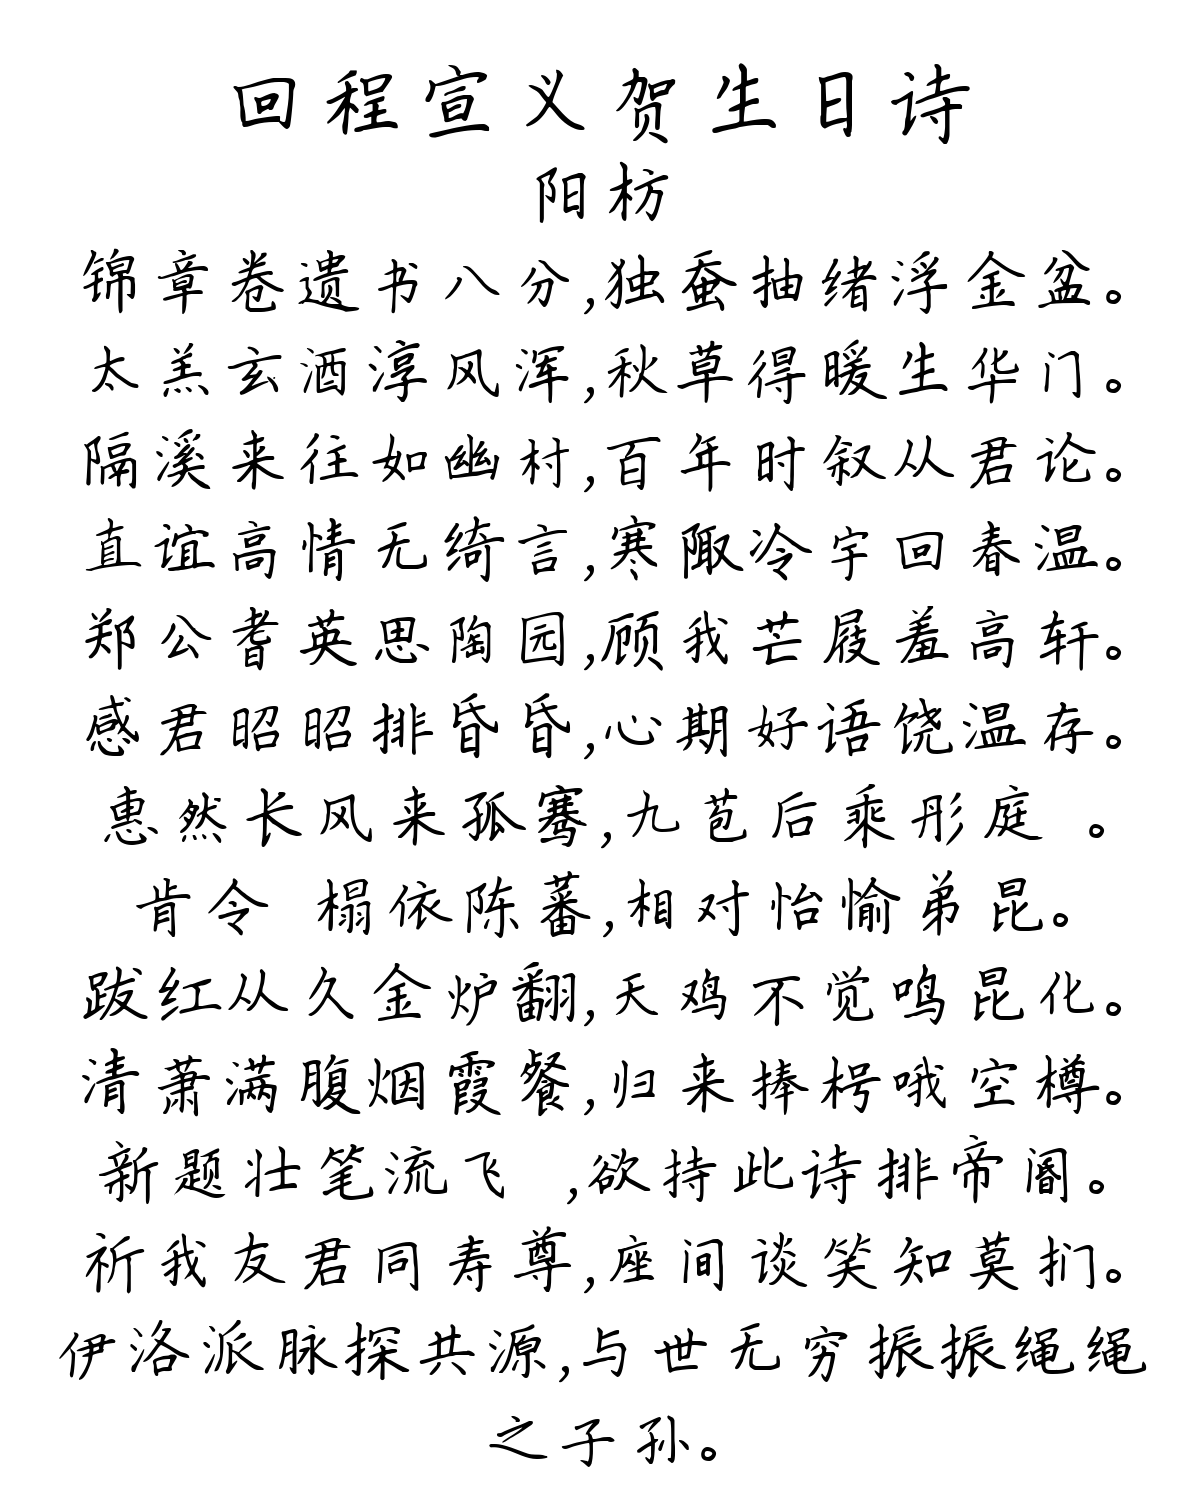 回程宣义贺生日诗
阳枋
锦章卷遗书八分,独蚕抽绪浮金盆。
太羔玄酒淳风浑,秋草得暖生华门。
隔溪来往如幽村,百年时叙从君论。
直谊高情无绮言,寒陬冷宇回春温。
郑公耆英思陶园,顾我芒屐羞高轩。
感君昭昭排昏昏,心期好语饶温存。
惠然长风来孤骞,九苞后乘彤庭 。
肯令 榻依陈蕃,相对怡愉弟昆。
跋红从久金炉翻,天鸡不觉鸣昆化。
清萧满腹烟霞餐,归来捧枵哦空樽。
新题壮笔流飞 ,欲持此诗排帝阍。
祈我友君同寿尊,座间谈笑知莫扪。
伊洛派脉探共源,与世无穷振振绳绳
之子孙。